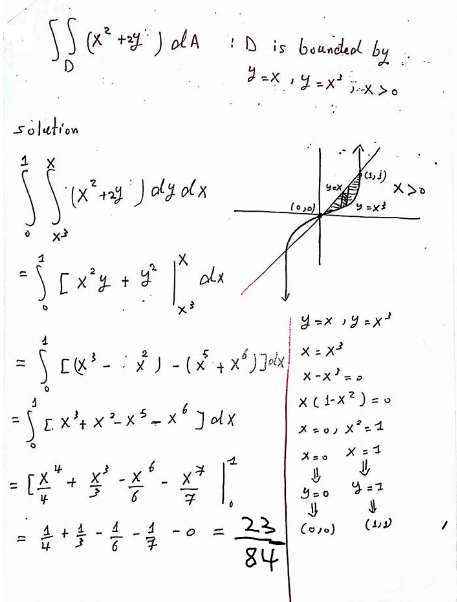 ∬_D (x² + 2y) dA : D is bounded by
y = x, y = x³; x > 0
solution
∫₀¹ ∫_{x³}^{x} (x² + 2y) dy dx
= ∫₀¹ [x²y + y² |_{x³}^{x} dx
= ∫₀¹ [(x³ - x²) - (x⁵ + x⁶)] dx
= ∫₀¹ [x³ + x² - x⁵ - x⁶] dx
= [x⁴/4 + x³/3 - x⁶/6 - x⁷/7 |₀¹
= 1/4 + 1/3 - 1/6 - 1/7 - 0 = 23/84
(1,1)
y=x
x > 0
(0,0)
y = x³
y = x, y = x³
x = x³
x - x³ = 0
x(1 - x²) = 0
x = 0, x² = 1
x = 0 x = 1
⇓ ⇓
y = 0 y = 1
⇓ ⇓
(0,0) (1,1)